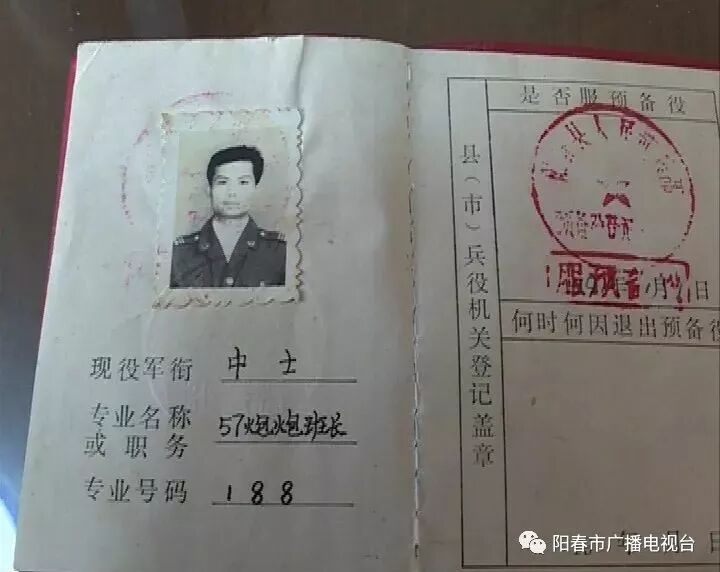 现役军衔 中士
专业名称
或职务 57炮炮班长
专业号码 188
县（市）兵役机关登记盖章
是否服预备役
服预备役
年 月 日
何时何因退出预备役
年 月 日
阳春市广播电视台